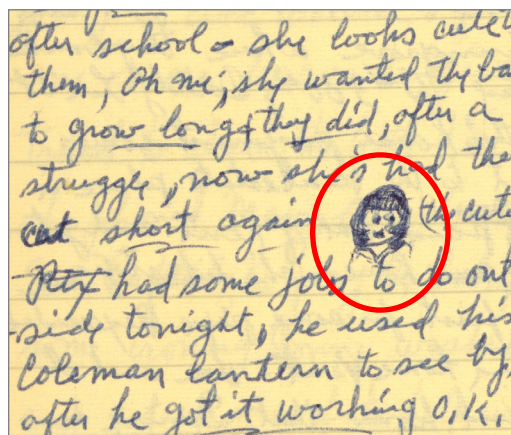 after school - she looks cute
them, Oh me; she wanted the ba
to grow long & they did, after a
struggle, now she's had the
cut short again (the cute
Rex had some jobs to do out
-side tonight, he used his
Coleman lantern to see by,
after he got it working O.K.,